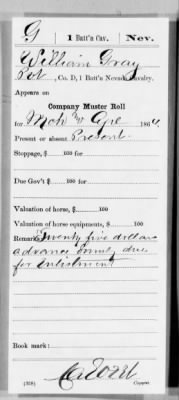 G | 1 Batt'n Cav. | Nev.
William Gray
Pvt, Co. D, 1 Batt'n Nevada Cavalry.
Appears on
Company Muster Roll
for Mch & Apl, 1864.
Present or absent Present.
Stoppage, $ 100 for
Due Gov't $ 100 for
Valuation of horse, $ 100
Valuation of horse equipments, $ 100
Remarks: Twenty five dollars
advance bounty due
for enlistment
Book mark:
(358) Copyist.